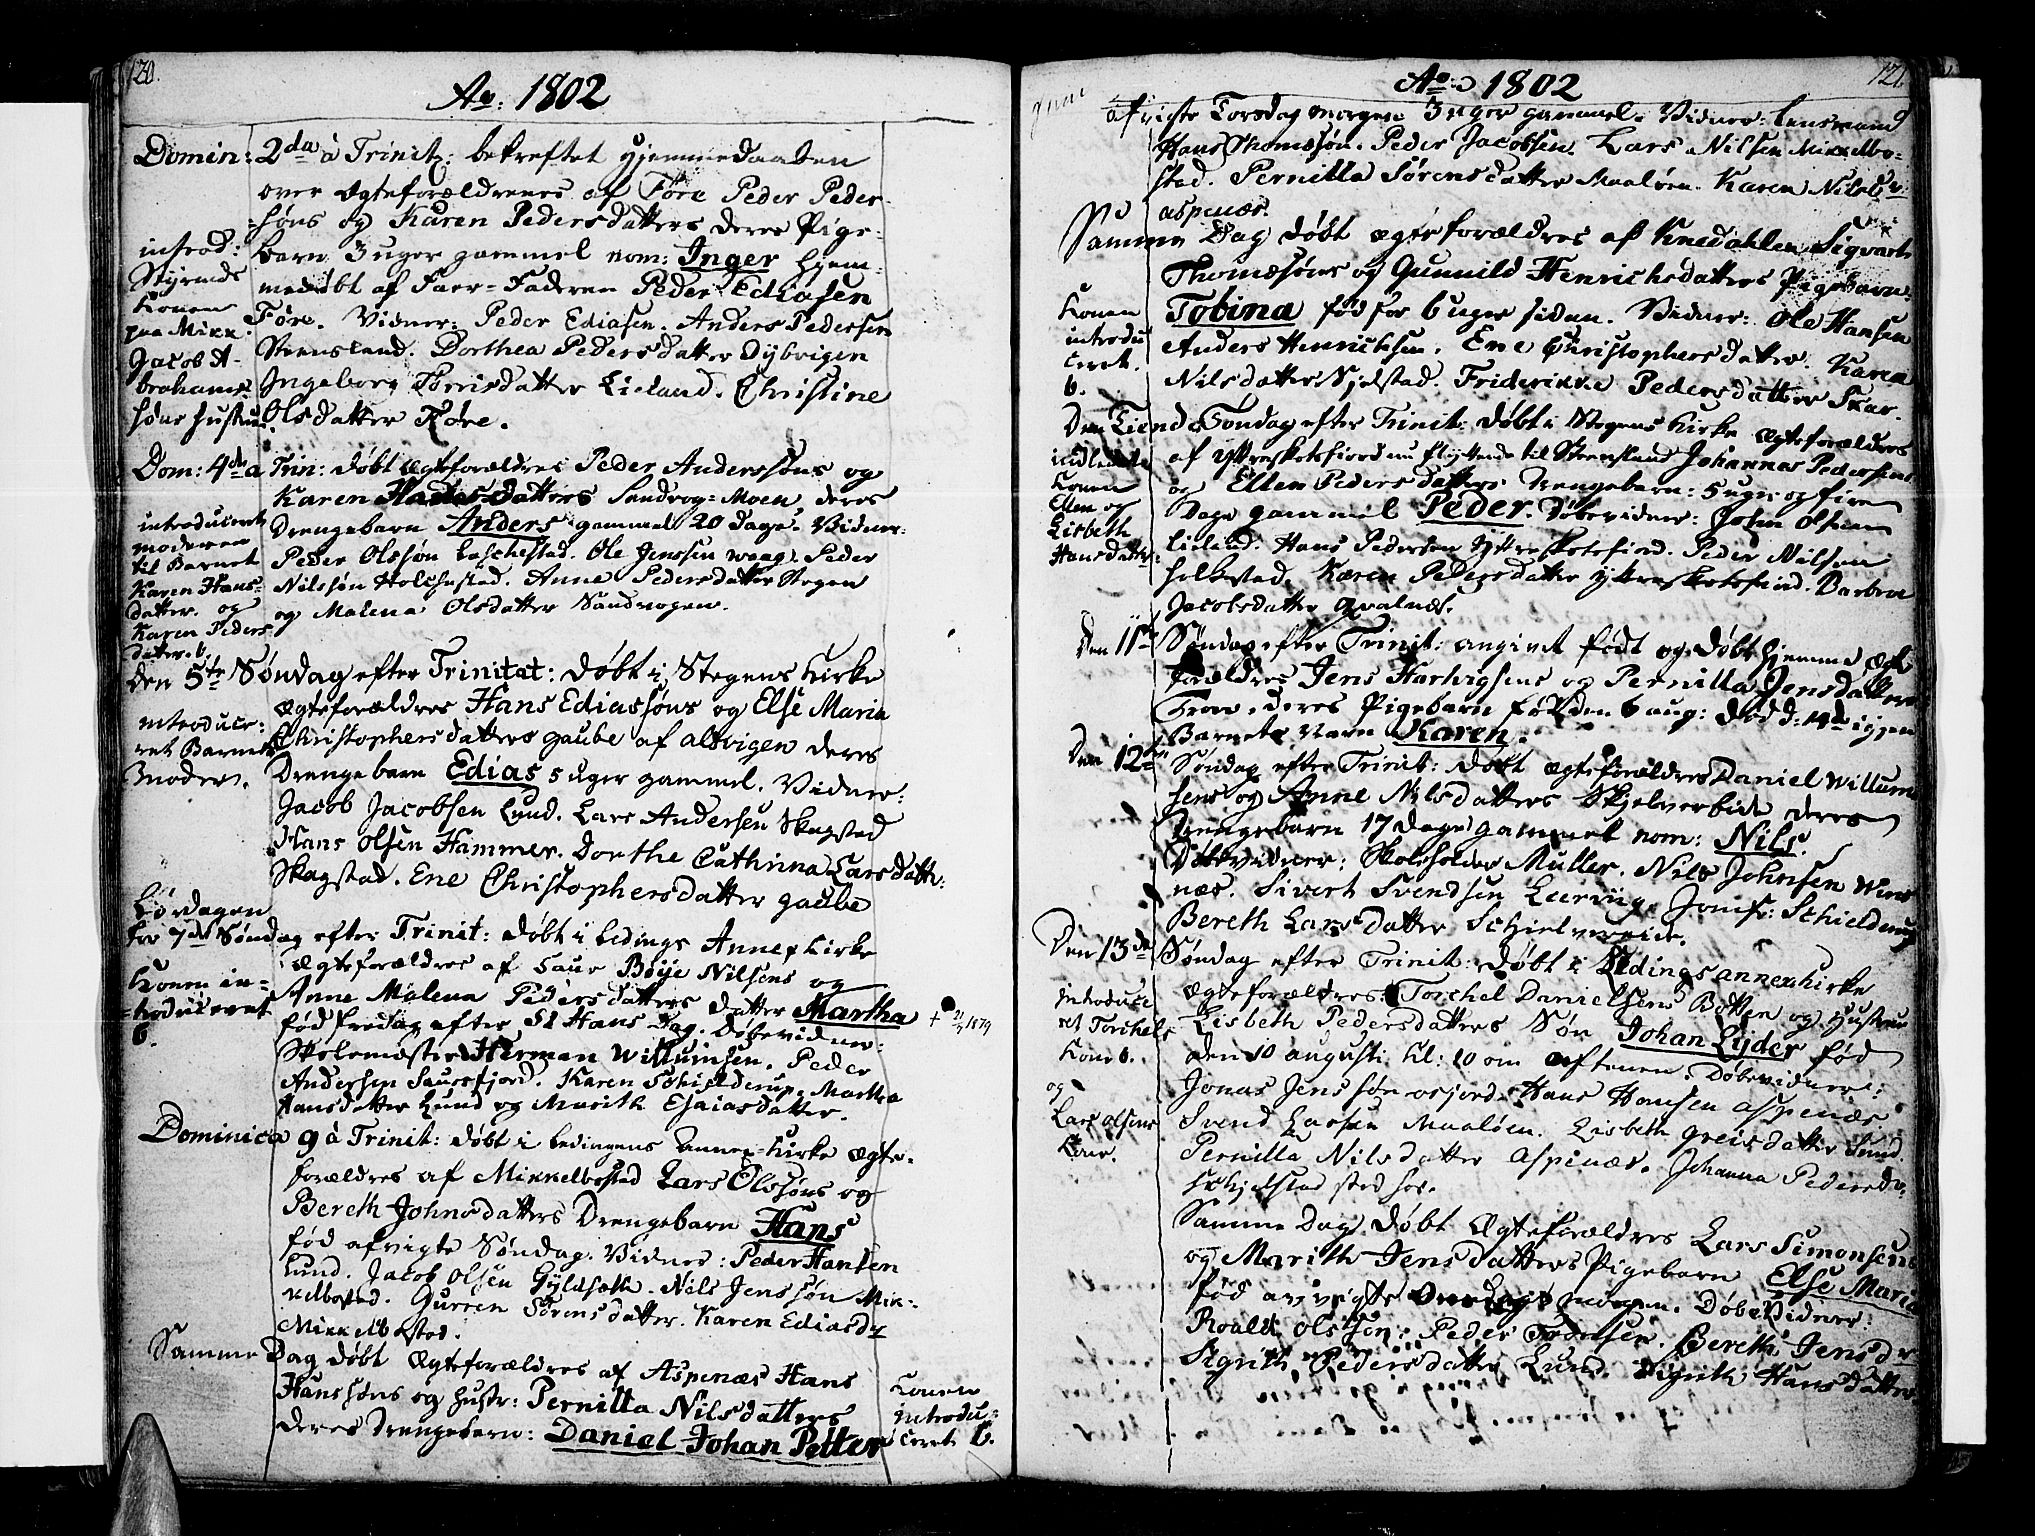 120.
Ao: 1802
Domin: 2da a Trinit: bekreftet hjemmedaaben
over Ægteforældrenes af Føre Peder Peder-
søns og Karen Pedersdatters deres Pige-
barn 3 uger gammel nom: Inger hjem-
medøbt af Faer-Faderen Peder Ediasen
Føre. Vidner: Peder Ediasen. Anders Pedersen
Steensland. Dorthea Pedersdatter Dybvigen
Ingeborg Torrisdatter Lieland. Christine
Olsdatter Føre.
introd:
Konen
paa Mikk.
Jacob A-
brahams-
søns hustru.
Dom: 4de a Trin: døbt Ægteforældres Peder Anderssøns og
Karen Hansdatters Sandvog-Moen, deres
Drengebarn Anders gammel 20 dage. Vidner:
Peder Olssøn Laschestad. Ole Jenssen Waag. Peder
Nilssøn Holchestad. Anne Pedersdatter Stegen
og Malena Olsdatter Sandvogen.
introduceret
moderen
til Barnet
Karen Hans-
datter. og
Karen Peders
datter. b.
Den 5te Søndag efter Trinitat: døbt i Stegens Kirke
Ægteforældres Hans Ediassøns og Else Maria
Christophersdatters gaube af altvigen deres
Drengebarn Edias 5 uger gammel. Vidner:
Jacob Jacobsen Lund. Lars Andersen Skagstad
Hans Olsen Hammer. Dorthe Cathrina Larsdatt:
Skagstad. Ene Christophersdatter gaube
introduce-
ret Barnets
Moder.
Lørdagen
før 7de Søndag efter Trinit: døbt i Ledings Annex Kirke
Ægteforældres af Saur Bøye Nilsens og
Anne Malena Pedersdatters datter Martha
fød fredag efter St Hans Dag. Døbevidner:
Skolemester Herman Willumsen. Peder
Andersen Saursfjord. Karen Schielderup. Martha
Hansdatter Lund og Marith Esaiasdatter.
Konen in-
troduceret
b.
+ 1879
Dominica 9 a Trinit: døbt i Ledingens Annex-Kirke Ægte-
forældres af Mikkelbostad Lars Olssøns og
Bereth Johnsdatters Drengebarn Hans
fød afvigte Søndag. Vidner: Peder Hansen
Lund. Jacob Olsen Gyldsath. Nils Jenssøn Mik-
kelbostad. Gurren Sørensdatter. Karen Ediasdr
Mikkelbostad.
Samme Dag døbt Ægteforældres af Aspenæs Hans
Hanssøns og hustr: Pernilla Nilsdatters
deres Drengebarn: Daniel Johan Petter
Konen
introdu-
ceret b.
121
Ao: 1802
afvigte Torsdag morgen 3 uger gammel. Vidner: Lensmand
Hans Thomæsøn. Peder Jacobsen. Lars Nilsen Mikkelbo-
stad. Pernilla Sørensdatter Maaløen. Karen Nilsdr:
aspenæs.
Samme Dag døbt ægteforældres af Knedahlen Sigvart
Thomæsøns og Gunnild Henrichsdatters Pigebarn:
Tobina fød for 6 uger siden. Vidner: Ole Hansen
Anders Henrichsen. Ene Christophersdatter. Karen
Nilsdatter Sjelstad. Friderikke Pedersdatter Skar.
Konen
introdu
ceret.
b.
Den Tiende Søndag efter Trinit: døbt i Stegens Kirke Ægteforældres
af Ytreskotsfiord nu flyttende til Steensland Johannes Pedersens
og Ellen Pedersdatters Drengebarn: 5 uger og fire
Dage gammel Peder. Døbevidner: Josen Olsen
Lieland. Hans Pedersen Ytreskotsfiord. Peder Nilsen
Holkestad. Karen Pedersdatter Ytreskotsfiord. Barbra
Jacobsdatter Qvalnæs.
indledede
Konen
Ellen og
Lisbeth
Hansdatter.
Den 11te Søndag efter Trinit: angivet født og døbt hjemme Ægte
forældres Jens Hartvigsens og Pernilla Jensdatters
Tran, deres Pigebarn fød den 6 aug: død d: 14de igjen
Barnets Navn Karen.
Den 12te Søndag efter Trinit: døbt Ægteforældres Daniel Willum-
sens og Anne Nilsdatters Skjelverbide deres
Drengebarn 17 dage gammel nom: Nils.
Døbevidner: Skoleholder Müller. Nils Johnsen Winds
næs. Sivert Svendsen Leering. Jomfr: Schielderup
Bereth Larsdatter Schielvereide.
Den 13de Søndag efter Trinit: døbt i Ledings annexkirke
Ægteforældres: Torchel Danielsens Botten og Hustrue
Lisbeth Pedersdatters Søn Johan Lyder fød
den 10 augusti kl: 10 om aftenen. Døbevidner:
Jonas Jenssøn osjord. Hans Hansen Aspenæs
Svend Larsen Maaløen. Lisbeth Greisdatter Sund.
Pernilla Nilsdatter Aspenæs. Johanna Pedersdr.
introduce
ret Torchels
Kone b.
og
Lars olsens
Kone.
Samme Dag døbt Ægteforældres Lars Simonsens
og Marith Jensdatters Pigebarn Else Maria
fød afvigte Onsdags morgen. Døbevidner:
Roald Olssøn. Peder Todesen. Bereth Jensdr
Sigrith Pedersdatter Lund. Sigrith Hansdatter